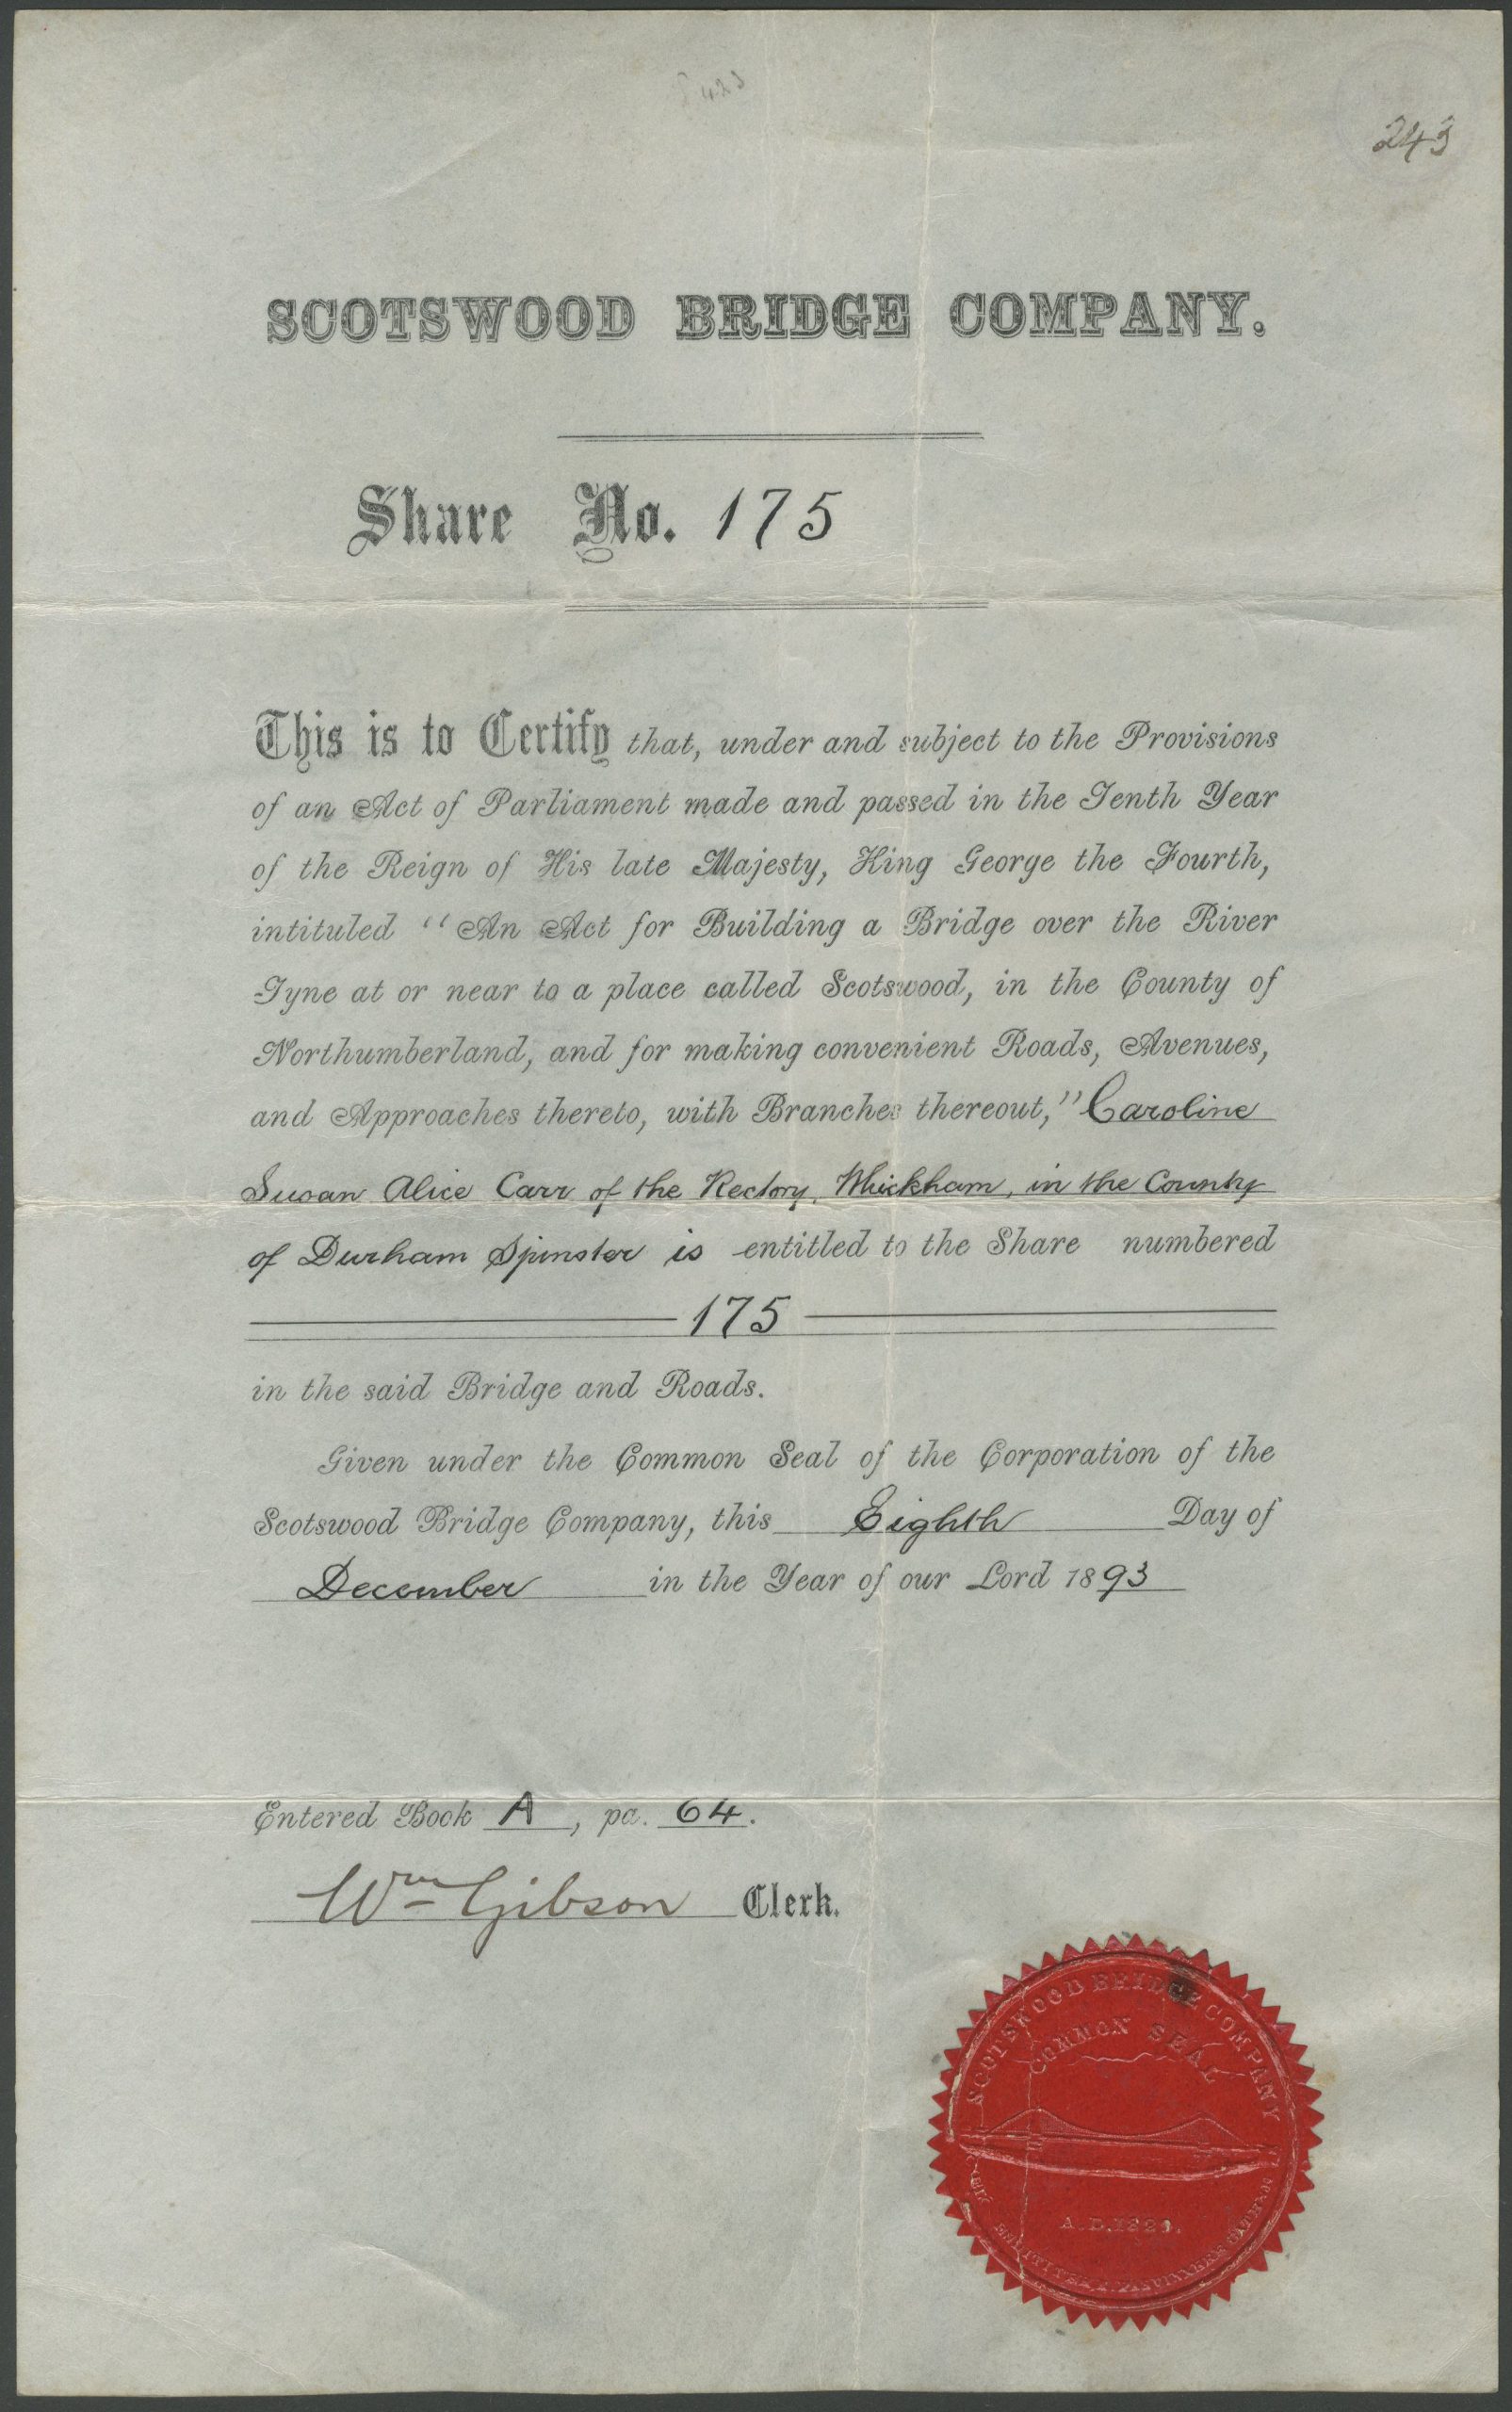 243
SCOTSWOOD BRIDGE COMPANY.
Share No. 175
This is to Certify that, under and subject to the Provisions
of an Act of Parliament made and passed in the Tenth Year
of the Reign of His late Majesty, King George the Fourth,
intituled "An Act for Building a Bridge over the River
Tyne at or near to a place called Scotswood, in the County of
Northumberland, and for making convenient Roads, Avenues,
and Approaches thereto, with Branches thereout," Caroline
Susan Alice Carr of the Rectory, Whickham, in the County
of Durham Spinster is entitled to the Share numbered
175
in the said Bridge and Roads.
Given under the Common Seal of the Corporation of the
Scotswood Bridge Company, this Eighth Day of
December in the Year of our Lord 1893
Entered Book A, pa. 64.
Wm Gibson Clerk.
SCOTSWOOD BRIDGE COMPANY
COMMON SEAL
A.D. 1829.